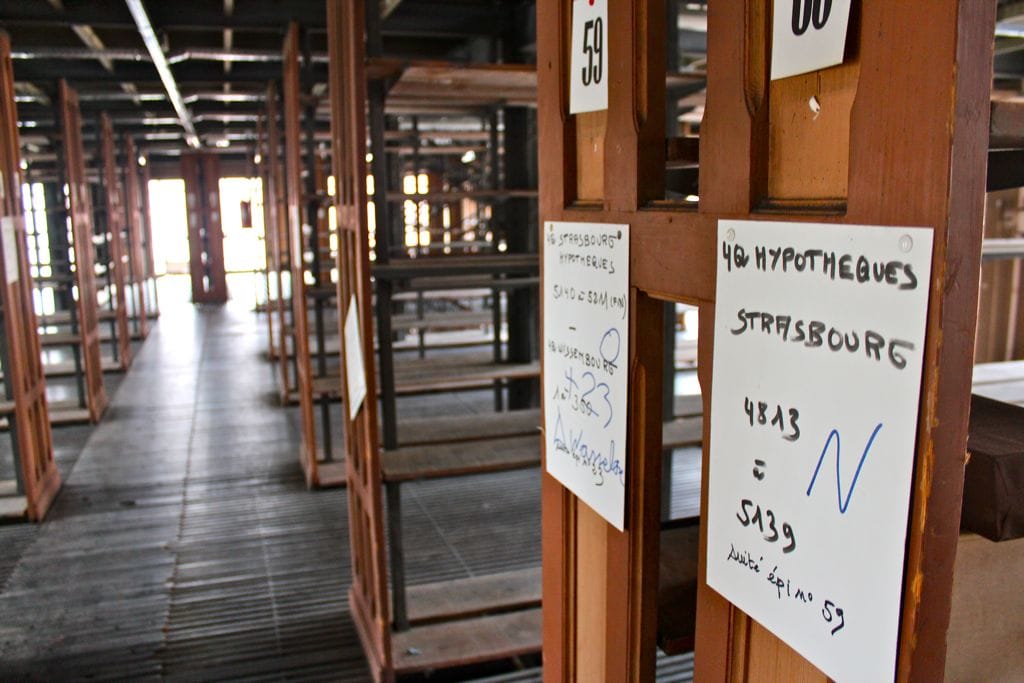 59
4Q STRASBOURG
HYPOTHEQUES
5140 = 5211 (FIN)
–
4Q WISSEMBOURG
1 = 300
+23
4Q HYPOTHEQUES
STRASBOURG
4813
=
N
5139
suite épi no 59